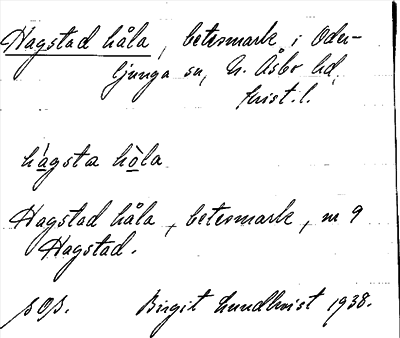 Hagstad håla, betesmark i Oder-
ljunga sn, N. Åsbo hd,
Krist. l.
hagsta hola
Hagstad håla, betesmark, nr 9
Hagstad.
Birgit Lundkvist 1938.